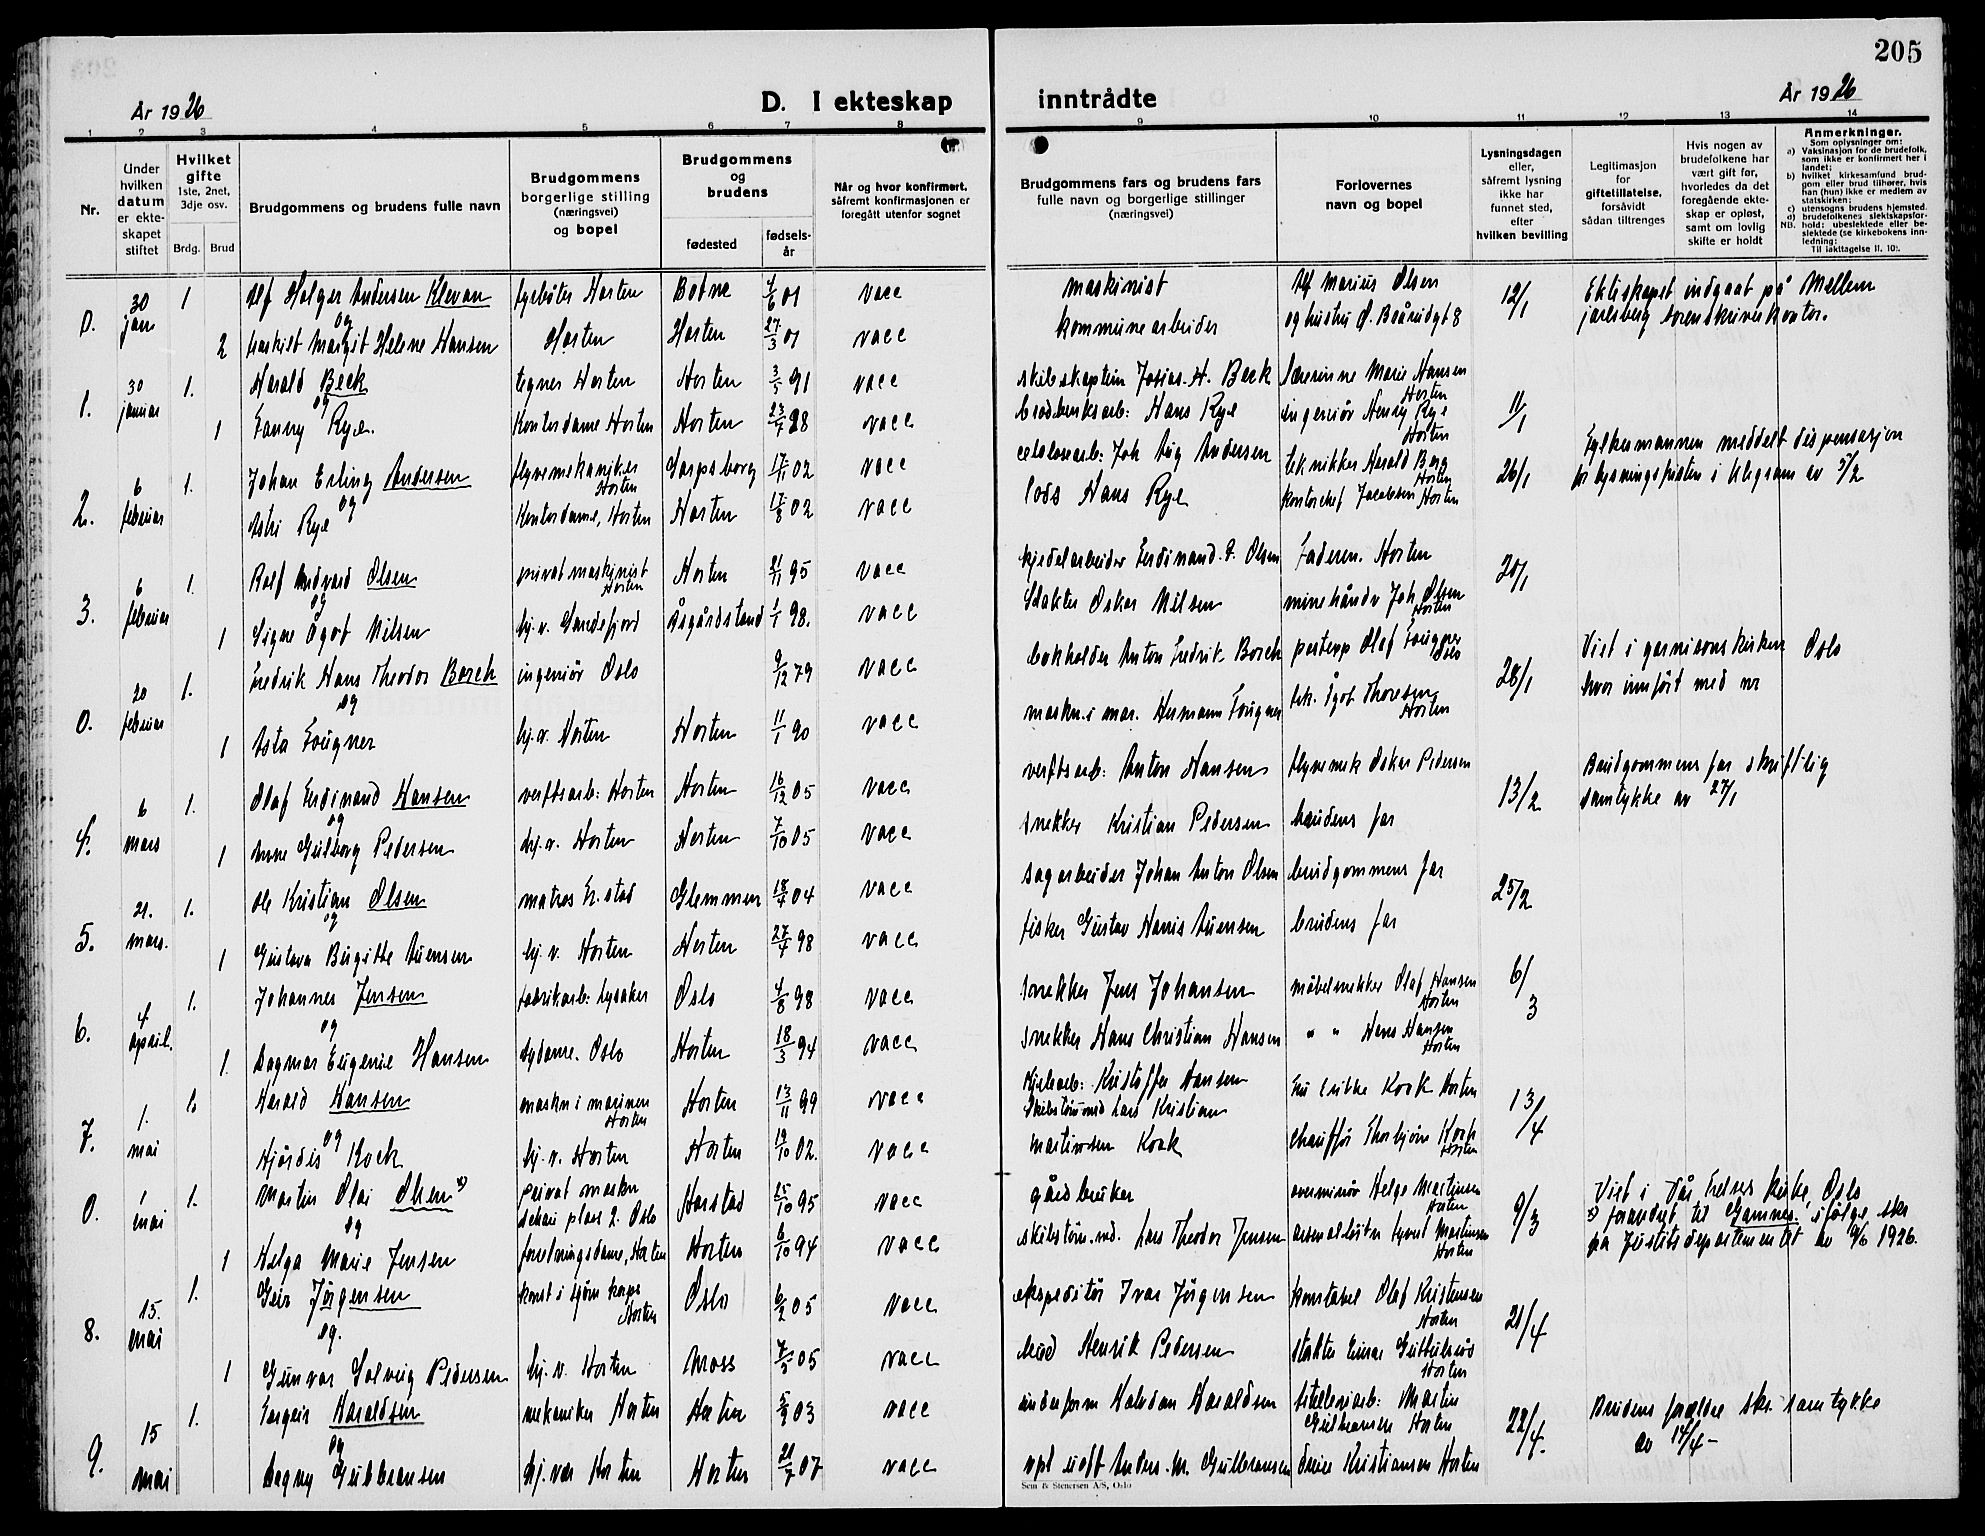 205
År 1926
D. I ekteskap
inntrådte
År 1926
1 2 3 4 5 6 7 8 9 10 11 12 13 14
Nr.
Under hvilken datum er ekteskapet stiftet
Hvilket gifte 1ste, 2net, 3dje osv.
Brdg. Brud
Brudgommens og brudens fulle navn
Brudgommens borgerlige stilling (næringsvei) og bopel
Brudgommens og brudens
fødested
fødselsår
Når og hvor konfirmert, såfremt konfirmasjonen er foregått utenfor sognet
Brudgommens fars og brudens fars fulle navn og borgerlige stillinger (næringsvei)
Forlovernes navn og bopel
Lysningsdagen eller, såfremt lysning ikke har funnet sted, efter hvilken bevilling
Legitimasjon for giftetillatelse, forsåvidt sådan tiltrenges
Hvis nogen av brudefolkene har vært gift før, hvorledes da det foregående ekteskap er opløst, samt om lovlig skifte er holdt
Anmerkninger.
Som oplysninger om:
a) Vaksinasjon for de brudefolk, som ikke er konfirmert her i landet;
b) hvilket kirkesamfund brudgom eller brud tilhører, hvis han (hun) ikke er medlem av statskirken;
c) utensogns brudens hjemsted.
d) brudefolkenes slektskapsforhold: ubeslektede eller beslektede (se kirkebokens innledning:
NB.
Til iakttagelse II, 10).
0. 30 jan 1. Alf Holger Andersen Klevan fyrbøter Horten Botne 4/6 01 vacc maskinist Alf Marius Olsen 12/1 Ekteskapet indgaat på Mellem
og
2 fraskilt Margit Helene Hansen Horten Horten 27/3 01 vacc kommunearbeider og hustru Ø. Boårudgt 8 jarlsberg sorenskriverkontor.
1. 30 januar 1. Harald Beck tegner Horten Horten 3/5 91 vacc skibskaptein Josias. H. Beck lærerinne Marie Hansen Horten 11/1
og
1 Fanny Rye. Kontordame Horten Horten 23/7 28 vacc Hans Rye ingeniør Henry Rye Horten
2. 6 februar 1. Johan Erling Andersen flyvemekaniker Horten Sarpsborg 17/11 02 vacc celolosearb: Joh Aug Andersen teknikker Harald Berg Horten 26/1 Fylkesmannen meddelt dispensasjon
og
Astri Rye Kontordame, Horten Horten 17/8 02 vacc lods Hans Rye kontorchef Jacobsen Horten for lysningsfristen i av 5/2
3. 6 februar 1. Rolf Andvard Olsen privat maskinist Horten Horten 21/11 95 vacc kjedelarbeider Ferdinand. A. Olsen Faderen. Horten 20/1
og
1 Signe Ågot Nilsen hj. v. Sandefjord Åsgårdstrand 1/1 98. vacc Slakter Oskar Nilsen minehåndv Joh Olsen Horten
0. 20 februar 1. Fredrik Hans Theodor Borch ingeniør Oslo 9/12 79 vacc bokholder Anton Fredrik Borch postexp Olaf Fougner Oslo 28/1 Viet i garnisonskirken Oslo
og
1 Asta Fougner hj. v. Horten Horten 11/1 90 vacc maskn. i mar. Hermann Fougner tek. Ågot Thoresen Horten hvor innført med nr
4. 6 mars 1. Olaf Ferdinand Hansen verftsarb: Horten Horten 16/12 05 vacc verftsarb: Anton Hansen flyvemek Oskar Pedersen 13/2 Brudgommens far skriftlig
og
1 Anne Gulborg Pedersen hj. v. Horten Horten 7/10 05 vacc snekker Kristian Pedersen brudens far samtykke av 27/1
5. 21. mars. 1. Ole Kristian Olsen matros Fr. stad Glemmen 18/7 04 vacc sagarbeider Johan Anton Olsen brudgommens far 25/2
og
1 Gustava Birgitte Auensen hj. v. Horten Horten 27/4 98 vacc fisker Gustav Hanis Auensen brudens far
6. 4. april. 1. Johannes Jensen fabrikarb: Lysaker Oslo 4/8 98 vacc snekker Jens Johansen møbelsnekker Olaf Hansen Horten 6/3
og
1. Dagmar Eugenie Hansen sydame. Oslo Horten 18/3 94 vacc snekker Hans Christian Hansen " " Hans Hansen Horten
7. 1. mai 1. Harald Hansen maskn i marinen Horten Horten 13/11 99 vacc Kjelearb: Kristoffer Hansen Kook Horten 13/4
og
Hjørdis Kook hj. v. Horten Horten 19/10 02. vacc Skibstømmd Lars Kristian Martinsen Kook chauffør Thorbjørn Kook Horten
0. 1 mai 1. Martin Olai Olsen x) privat maskn Schous plass 2. Oslo Harstad 25/10 95 vacc gårdbruker overminør Helge Martinsen Horten 9/3 Viet i Vår Frelsers kirke, Oslo
og
1 Helga Marie Jensen forretningsdame, Horten Horten 6/10 94 vacc skibstøm. md. Lars Theodor Jensen Martinsen Horten x) forandret til Gamnes, ifølge skr
på Justitsdepartementet av 9/6 1926.
8. 15. mai 1. Geir Jørgensen konst i sjøm korps Horten Oslo 6/2 05 vacc ekspeditør Ivar Jørgensen konstabel Olaf Kristensen Horten 21/4
og.
1 Gunvor Solveig Pedersen hj. v. Horten Moss 7/5 05 vacc bud Henrik Pedersen slakter Einar Guttulsrød Horten
9. 15 mai 1. Torgeir Haraldsen mekaniker Horten Horten 5/9 03 vacc underform Halvdan Haraldsen artilleriarb: Martin Gulbransen Horten 22/4. Brudens foreldre skr. samtykke
og
Dagny Gulbransen hj. vær Horten Horten 21/7 07 vacc vpl uoff Anders. M. Gulbransen Kristiansen Horten av 14/4 -
Sem & Stenersen A/S, Oslo